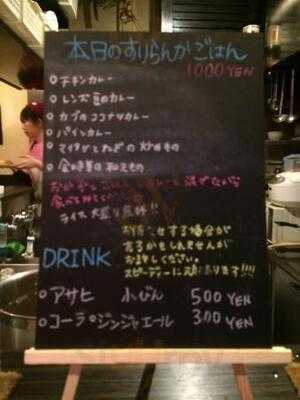 本日のすりらんかごはん
1000YEN
○チキンカレー
○レンズ豆のカレー
○カブのココナツカレー
○パインカレー
○マイタケとねぎの炒めもの
○金時草の和えもの
おかずとごはん
混ぜながら
食べてみてください
ライス大盛り無料!!
お待たせする場合が
あるかもしれませんが
お許しください。
スピーディーに
ます!!!!
DRINK
○アサヒ 小びん 500YEN
○コーラ・ジンジャエール 300YEN